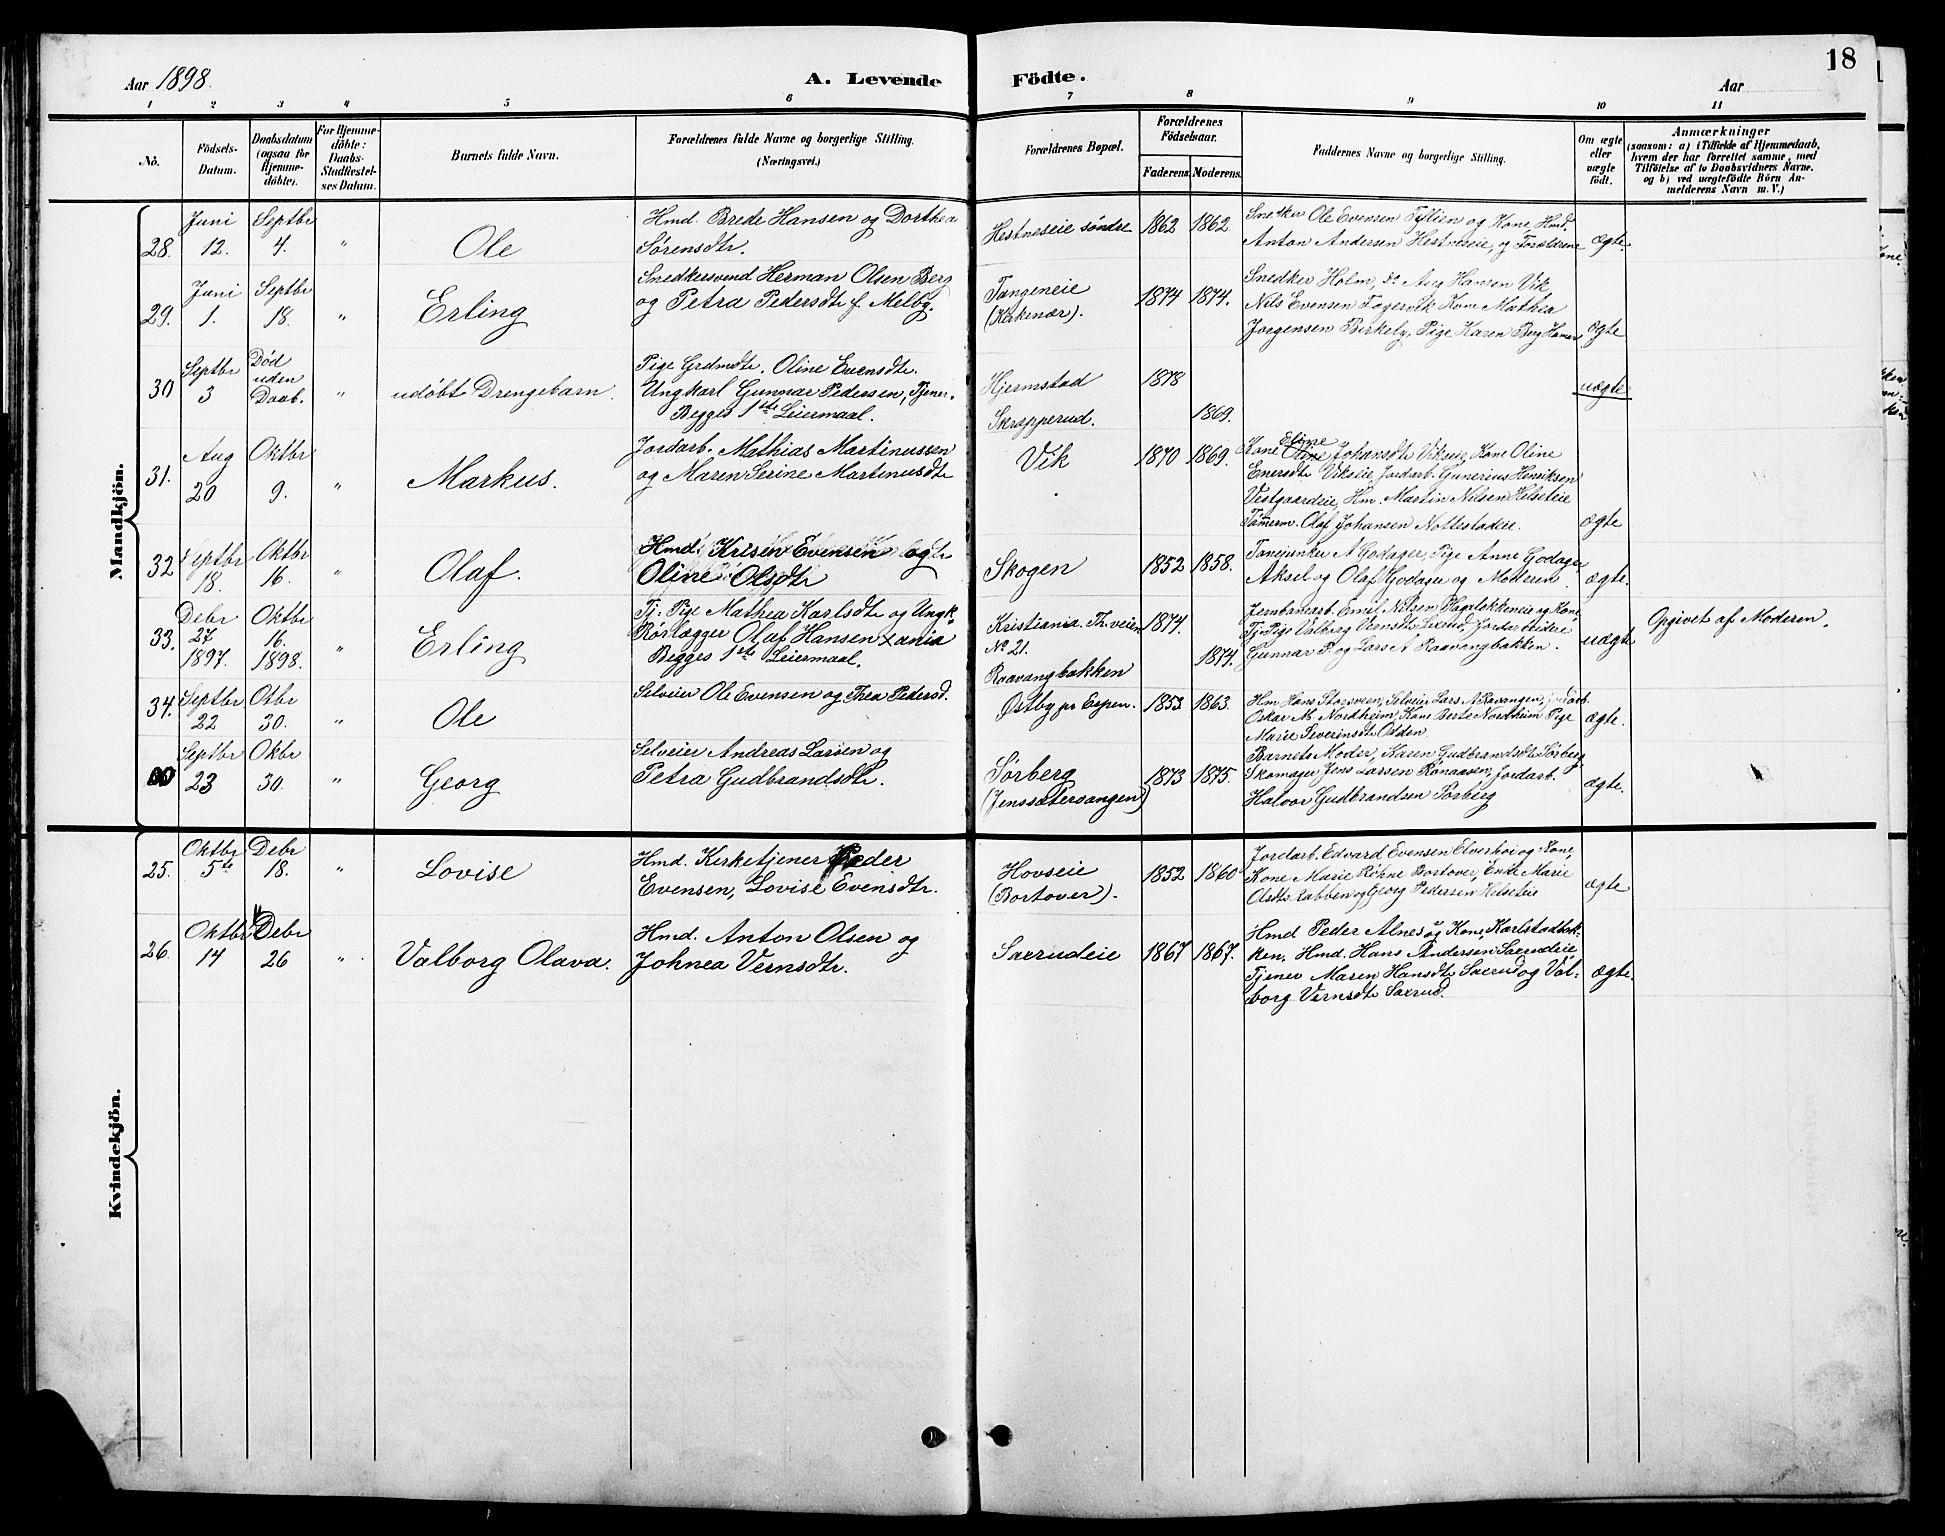 18
Aar 1898.
A. Levende
Födte.
Aar
1 2 3 4 5 6 7 8 9 10 11
No.
Födsels-
Datum.
Daabsdatum
(ogsaa for
Hjemme-
döbte).
For Hjemme-
döbte:
Daabs-
Stadfestel-
ses Datum.
Barnets fulde Navn.
Forældrenes fulde Navne og borgerlige Stilling.
(Næringsvei.)
Forældrenes Bopæl.
Forældrenes
Födselsaar.
Faderens Moderens.
Faddernes Navne og borgerlige Stilling.
Om ægte
eller
uægte
födt.
Anmærkninger
(saasom: a) i Tilfælde af Hjemmedaab,
hvem der har forrettet samme, med
Tilföielse af to Daabsvidners Navne.
og b) ved uægtefödte Börn An-
melderens Navn m. V.)
Mandkjön.
28.
Juni
12.
Septbr
4.
"
Ole
Hmd. Brede Hansen og Dorthea
Sörensdtr.
Hestneseie söndre
1862 1862.
Snedker Ole Evensen og Kone, Hmd.
Anton Andersen Hestneseie, og Forældrene
ægte.
29.
Juni
1.
Septbr
18.
"
Erling
Snedkersvend Herman Olsen Berg
og Petra Pedersdtr f. Melby.
Tangeneie
(Kirkenær).
1874 1874.
Snedker Holm, do Aug Hansen Vik
Nils Evensen Fagervik Kone Mathea
Jorgensen Birkely, Pige Karen Berg Hamar
ægte
30
Septbr
3
Död
uden
Daab.
"
udöbt Drengebarn.
Pige Grdmdtr. Oline Evensdtr.
Ungkarl Gunnar Pedersen, Tjener.
Begges 1ste Leiermaal.
Hjermstad
Skrapperud.
1878
1869.
uægte
31.
Aug
20
Oktbr
9.
"
Markus.
Jordarb. Mathias Martinussen
og Maren Serine Martinusdtr
Vik
1870 1869.
Kone Eline Johansdtr Vikeie, Kone Oline
Enersdtr Vikeie, Jordarb. Gunerius Henriksen
Vestgaardeie, Hm. Martin Nilsen Helseteie
Tömmerm. Olaf Johansen Nottestadeie.
ægte
32
Septbr
18.
Oktbr
16.
"
Olaf.
Hmd. Krisen Evensen og
Oline Olsdtr
Skogen
1852 1858.
N Godager, Pige Anne Godager
Aksel og Olaf Godager og Moderen
ægte.
33.
Debr
27
1897.
Oktbr
16.
1898.
"
Erling
Tj. Pige Mathea Karlsdtr og Ungk.
Rörlægger Olaf Hansen Xania
Begges 1ste Leiermaal.
Kristiania Th. veien
No 21.
Raavangbakken
1874.
1874.
Jernbanearb. Emil Nilsen Hagelökkeneie og Kone,
Tj. Pige Valborg Vernsdtr Sæerud, Jordarbeidere
Gunnar P. og Lars A Raavangbakken.
uægte
Opgivet af Moderen.
34.
Septbr
22
Otbr
30.
"
Ole
Selveier Ole Evensen og Thea Pedersd.
Östby pr Espen.
1853 1863.
Hm Hans Storsveen, Selveier Lars A Ravangen, Jordarb.
Oskar M. Nordheim, Kone Berte Nordheim Pige
Marie Severinsdtr Odden.
ægte.
Septbr
23
Oktbr
30.
"
Georg
Selveier Andreas Larsen og
Petra Gudbrandsdtr.
Sörberg
(Jenssætervangen)
1873 1875.
Barnets Moder, Karen Gudbrandsdtr Sörberg
Skomager Jens Larsen Ronaasen, Jordarb.
Halvor Gudbrandsen Sörberg
ægte.
Kvindekjön.
25.
Oktbr
5te
Debr
18.
"
Lovise
Hmd. Kirketjener Peder
Evensen, Lovise Evensdtr.
Hovseie
(Bortover).
1852 1860
Jordarb. Edvard Evensen Elverhoi og Kone,
Kone Marie Röhne Bortover, Enke Marie
Olsdtr Labben og Georg Pedersen Helseteie
ægte
26.
Oktbr
14
Debr
26
"
Valborg Olava.
Hmd. Anton Olsen og
Johnea Vernsdtr.
Saerudeie
1867 1867.
Hmd Peder Alnes og Kone, Karlstadbak-
ken, Hmd. Hans Andersen Saerudeie,
Tjener Maren Hansdtr Saerud og Val-
borg Vernsdtr Saerud.
ægte.